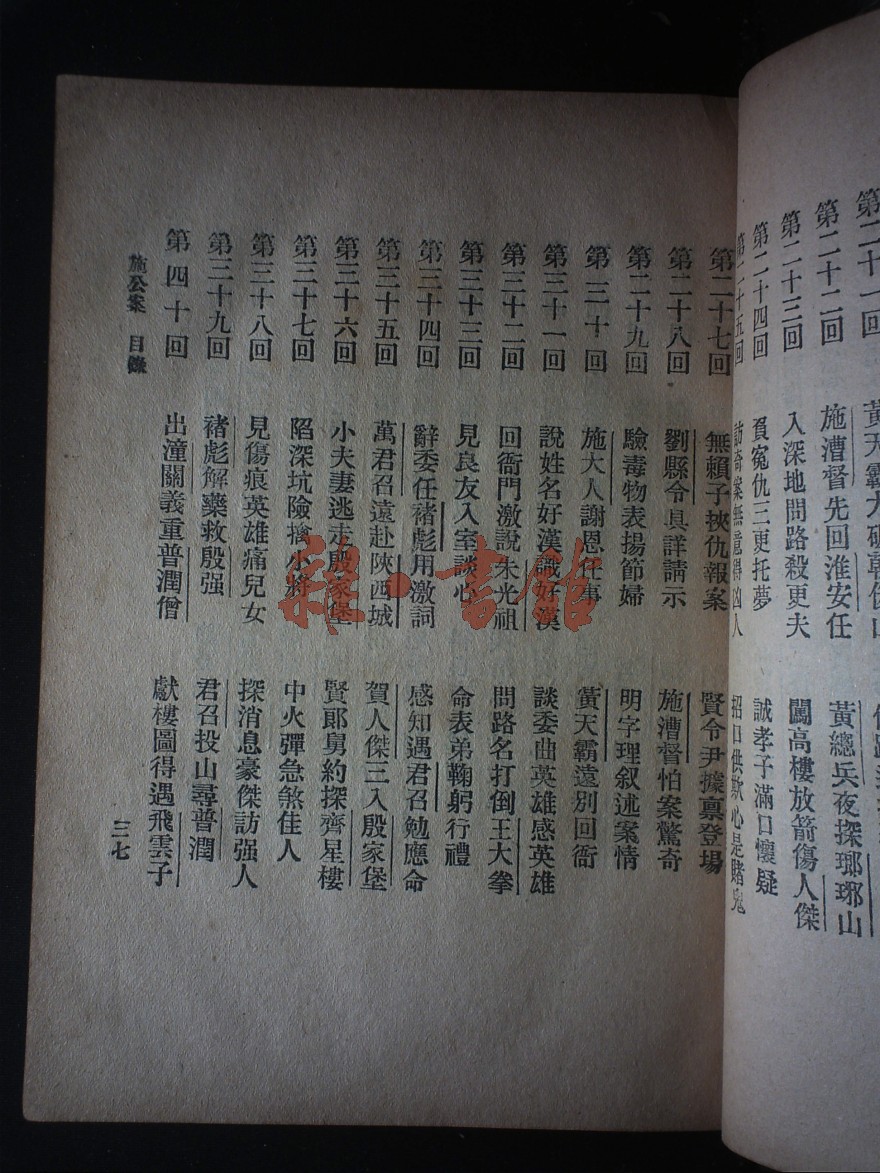 第二十一回 黃天霸大破朝
第二十二回 施漕督先回淮安任 黃總兵夜探瑯琊山
第二十三回 入深地問路殺更夫 闖高樓放箭傷人傑
第二十四回 負冤仇三更托夢 誠孝子滿口懷疑
第二十五回 訪奇案無意得凶人 招口供欺心是賭鬼
第二十七回 無賴子挾仇報案 賢令尹據稟登場
第二十八回 劉縣令具詳請示 施漕督怕案驚奇
第二十九回 驗毒物表揚節婦 明字理叙述案情
第三十回 施大人謝恩任事 黃天霸遠別回衙
第三十一回 說姓名好漢識好漢 談委曲英雄感英雄
第三十二回 回衙門激說朱光祖 問路名打倒王大拳
第三十三回 見良友入室談心 命表弟鞠躬行禮
第三十四回 辭委任褚彪用激詞 感知遇君召勉應命
第三十五回 萬君召遠赴陝西城 賀人傑三入殷家堡
第三十六回 小夫妻逃走殷家堡 賢郎舅約探齊星樓
第三十七回 陷深坑險擒小將 中火彈急煞佳人
第三十八回 見傷痕英雄痛兒女 探消息豪傑訪强人
第三十九回 褚彪解藥救殷强 君召投山尋普潤
第四十回 出潼關義重普潤僧 獻樓圖得遇飛雲子
施公案 目錄 三七